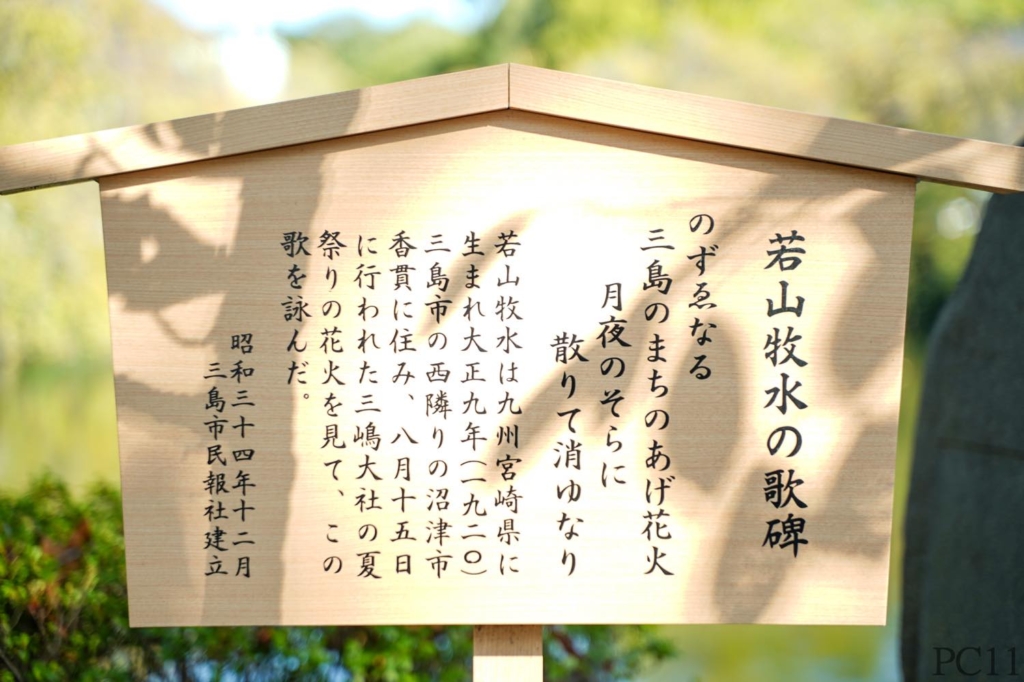 若山牧水の歌碑
のずゑなる
三島のまちのあげ花火
月夜のそらに
散りて消ゆなり
若山牧水は九州宮崎県に
生まれ大正九年(一九二〇)
三島市の西隣りの沼津市
香貫に住み、八月十五日
に行われた三嶋大社の夏
祭りの花火を見て、この
歌を詠んだ。
昭和三十四年十二月
三島市民報社建立
PC11